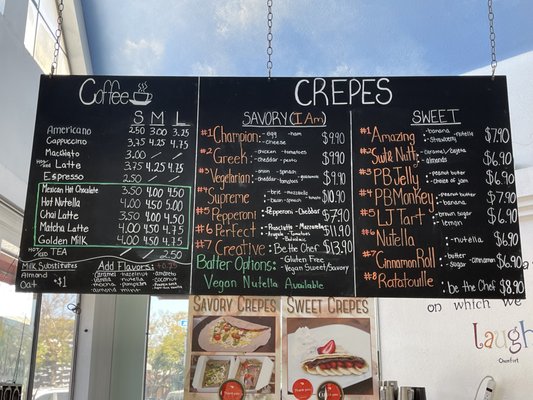 Coffee
S M L
Americano 2.50 3.00 3.25
Cappuccino 3.75 4.25 4.75
Macchiato 3.00 / /
Hot/Iced Latte 3.75 4.25 4.75
Espresso 2.50 / /
Mexican Hot Chocolate 3.50 4.00 4.50
Hot Nutella 4.00 4.50 5.00
Chai Latte 3.50 4.00 4.50
Matcha Latte 4.00 4.50 4.75
Golden Milk 4.00 4.50 4.75
Hot/Iced TEA / / 2.50
Milk Substitutes
Almond
Oat +$1
Add Flavors:
caramel hazelnut
vanilla
mocha pumpkin
almond mint
CREPES
SAVORY (I Am)
#1 Champion: egg -ham $9.90
cheese
#2 Greek: chicken -tomatoes 9.90
-cheddar -pesto
#3 Vegetarian: onion -spinach 9.90
-cheddar -tomatoes
#4 Supreme -brie -mozzarella $10.90
-bacon -spinach -tomato
#5 Pepperoni -Pepperoni -Cheddar $7.90
#6 Perfect -Prosciutto -Mozzarella $11.90
-Arugula -Tomatoes
-Balsamic
#7 Creative: Be the Chef $13.90
Batter Options: -Gluten Free
-Vegan Sweet/Savory
Vegan Nutella Available
SWEET
#1 Amazing -banana -nutella $7.90
-strawberry
#2 -caramel/cajeta $6.90
-almonds
#3 PB Jelly -peanut butter $6.90
-choice of jam
#4 PB Monkey -peanut butter $7.90
-banana
#5 LJ Tart -brown sugar $6.90
-lemon
#6 Nutella -nutella $6.90
#7 Cinnamon Roll -butter
-sugar -cinnamon $6.90
#8 Ratatouille -be the Chef $8.90
SAVORY CREPES
SWEET CREPES
Thank you
Thank you
on which we
laugh